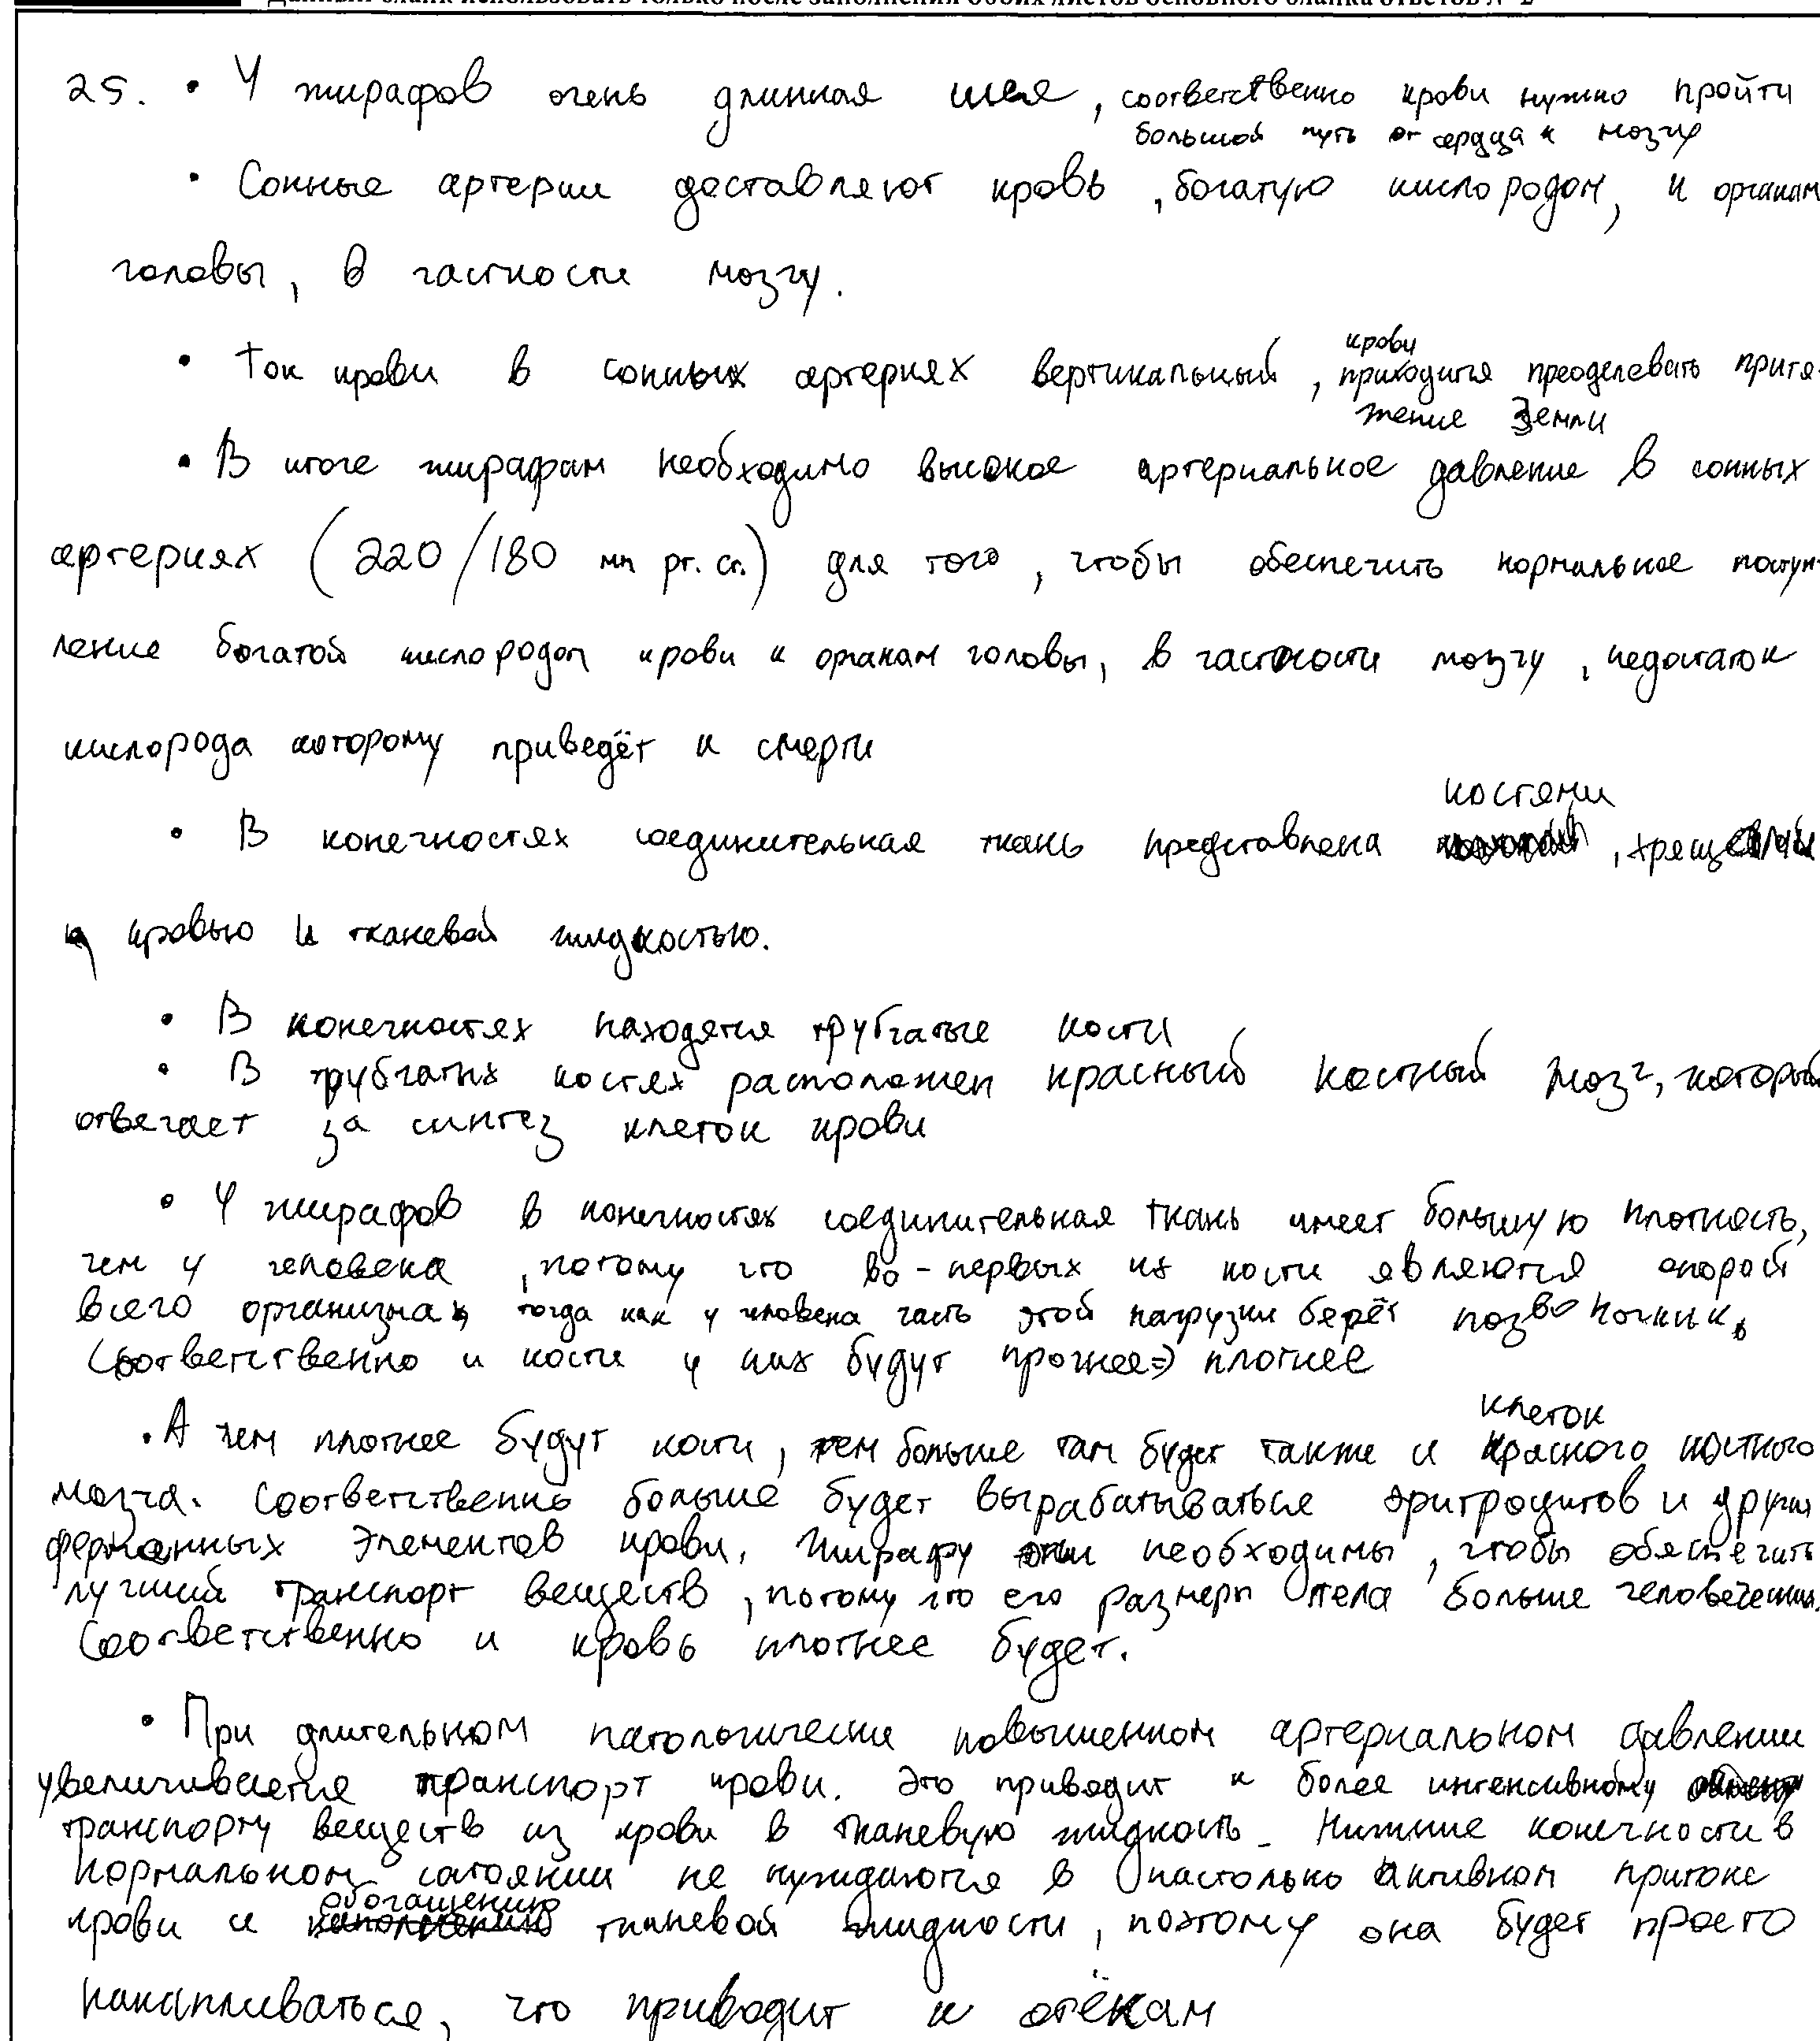 Данный бланк использовать только после заполнения обоих листов основного бланка ответов № 2
25. • У жирафов очень длинная шея, соответственно крови нужно пройти
большой путь от сердца к мозгу
• Сонные артерии доставляют кровь, богатую кислородом, к органам
головы, в частности мозгу.
• Ток крови в сонных артериях вертикальный, крови приходится преоделевать притя-
жение Земли
• В итоге жирафам необходимо высокое артериальное давление в сонных
артериях (220/180 мм рт. ст.) для того, чтобы обеспечить нормальное поступ-
ление богатой кислородом крови к органам головы, в частности мозгу, недостаток
кислорода которому приведёт к смерти
• В конечностях соединительная ткань представлена костями, хрящевой
кровью и тканевой жидкостью.
• В конечностях находятся трубчатые кости
• В трубчатых костях расположен красный костный мозг, который
отвечает за синтез клеток крови
• У жирафов в конечностях соединительная ткань имеет большую плотность,
чем у человека, потому что во-первых их кости являются опорой
всего организма, тогда как у человека часть этой нагрузки берёт позвоночник,
Соответственно и кости у них будут прочнее => плотнее
• А чем плотнее будут кости, тем больше там будет также и клеток красного костного
мозга. Соответственно больше будет вырабатываться эритроцитов и других
форменных элементов крови. Жирафу они необходимы, чтобы обяспечить
лучший транспорт веществ, потому что его размеры тела больше человеческих.
Соответственно и кровь плотнее будет.
• При длительном патологически повышенном артериальном давлении
увеличивается транспорт крови. Это приводит к более интенсивному
транспорту веществ из крови в тканевую жидкость. Нижние конечности в
нормальном сотоянии не нуждаются в настолько активном притоке
крови и обогащению тканевой жидкости, поэтому она будет просто
накапливаться, что приводит к отёкам